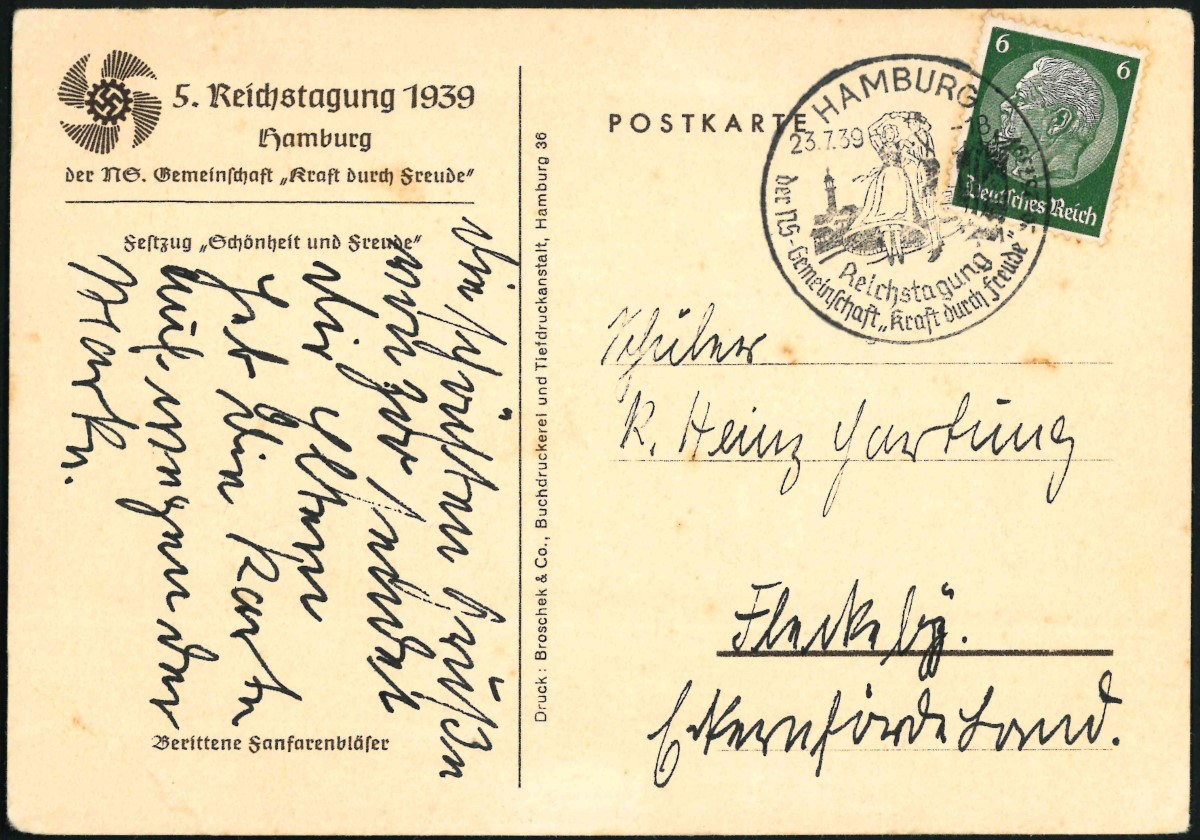 5. Reichstagung 1939
Hamburg
der NS. Gemeinschaft „Kraft durch Freude“
Festzug „Schönheit und Freude“
Die schönsten Grüßen
von hier sendet
Dir
Karte
Berittene Fanfarenbläser
Druck: Broschek & Co., Buchdruckerei und Tiefdruckanstalt, Hamburg 36
POSTKARTE
HAMBURG
23.7.39
Reichstagung
der NS-Gemeinschaft „Kraft durch Freude“
6 6
Deutsches Reich
Schüler
K. Heinz Hartung
Fleckeby.
Eckernförde Land.